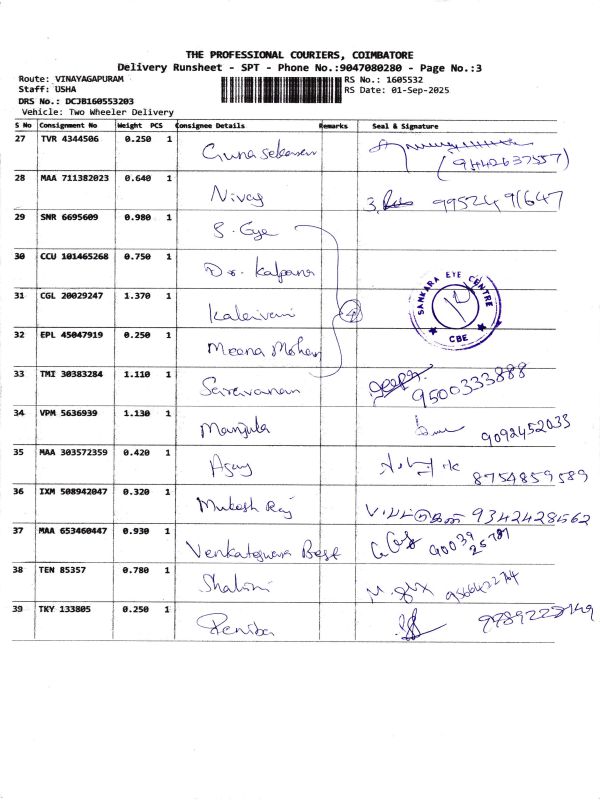 THE PROFESSIONAL COURIERS, COIMBATORE
Delivery Runsheet - SPT - Phone No.:9047080280 - Page No.:3
Route: VINAYAGAPURAM RS No.: 1605532
Staff: USHA RS Date: 01-Sep-2025
DRS No.: DCJB160553203
Vehicle: Two Wheeler Delivery
S No Consignment No Weight PCS Consignee Details Remarks Seal & Signature
27 TVR 4344506 0.250 1 Gunasekaran
(9442637557)
28 MAA 711382023 0.640 1 Nivas 9952491647
29 SNR 6695609 0.980 1 S. Eye
30 CCU 101465268 0.750 1 Dr. Kalpana
31 CGL 20029247 1.370 1 Kalaivani 4 SANKARA EYE CENTRE CBE
32 EPL 45047919 0.250 1 Meena Mohan
33 TMI 30383284 1.110 1 Saravanan 9500333888
34 VPM 5636939 1.130 1 Manjula 9092452033
35 MAA 303572359 0.420 1 Ajay 8754859589
36 IXM 508942047 0.320 1 Mukesh Raj 9342428562
37 MAA 653460447 0.930 1 Venkateswara Best 90039
25787
38 TEN 85357 0.780 1 Shalini
39 TKY 133805 0.250 1 9789228149